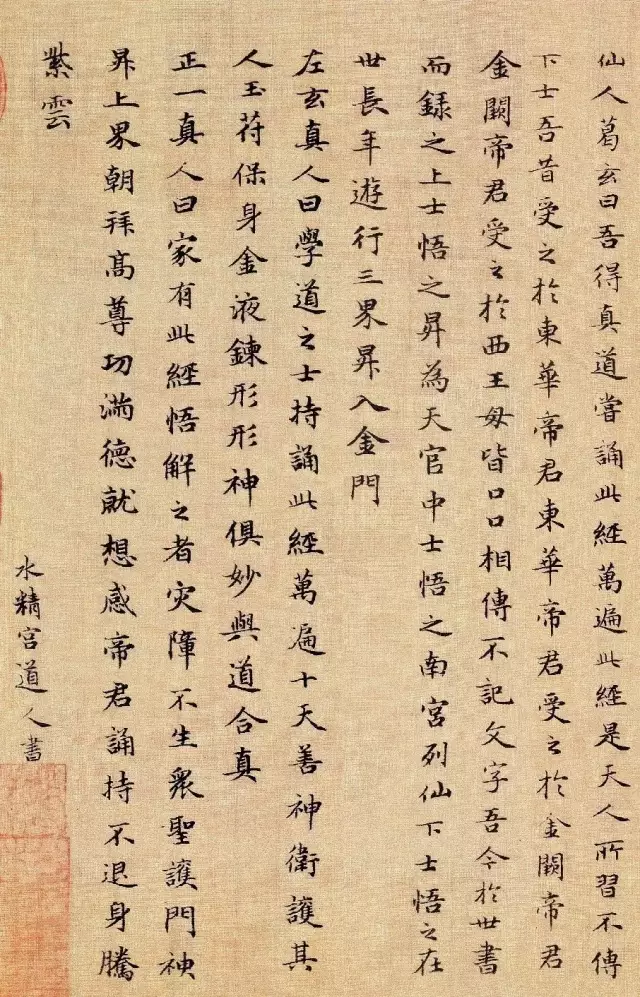 仙人葛玄曰吾得真道嘗誦此經萬遍此經是天人所習不傳
下士吾昔受之於東華帝君東華帝君受之於金闕帝君
金闕帝君受之於西王母皆口口相傳不記文字吾今於世書
而録之上士悟之昇為天官中士悟之南宮列仙下士悟之在
世長年遊行三界昇入金門
左玄真人曰學道之士持誦此經萬遍十天善神衛護其
人玉符保身金液鍊形形神俱妙與道合真
正一真人曰家有此經悟解之者灾障不生衆聖護門神
昇上界朝拜髙尊功滿德就想感帝君誦持不退身騰
紫雲
水精宮道人書